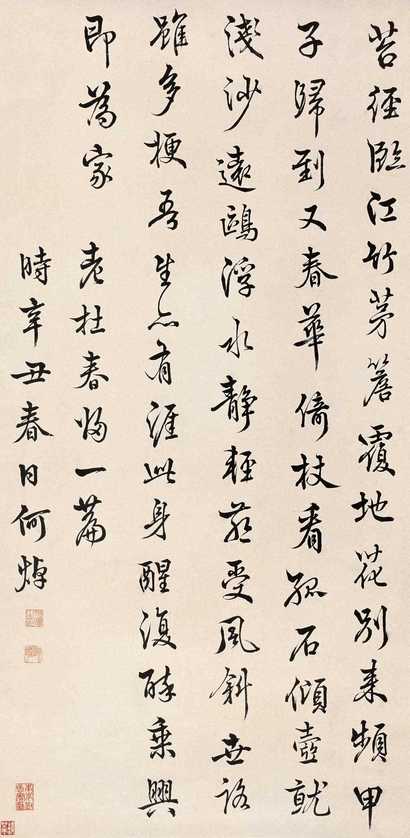 苔徑臨江竹茅簷覆地花別来頻甲
子歸到又春華倚杖看孤石傾壺就
淺沙遠鷗浮水靜輕燕受風斜世路
雖多梗吾生亦有涯此身醒復醉乘興
即為家 老杜春歸一篇
時辛丑春日何焯